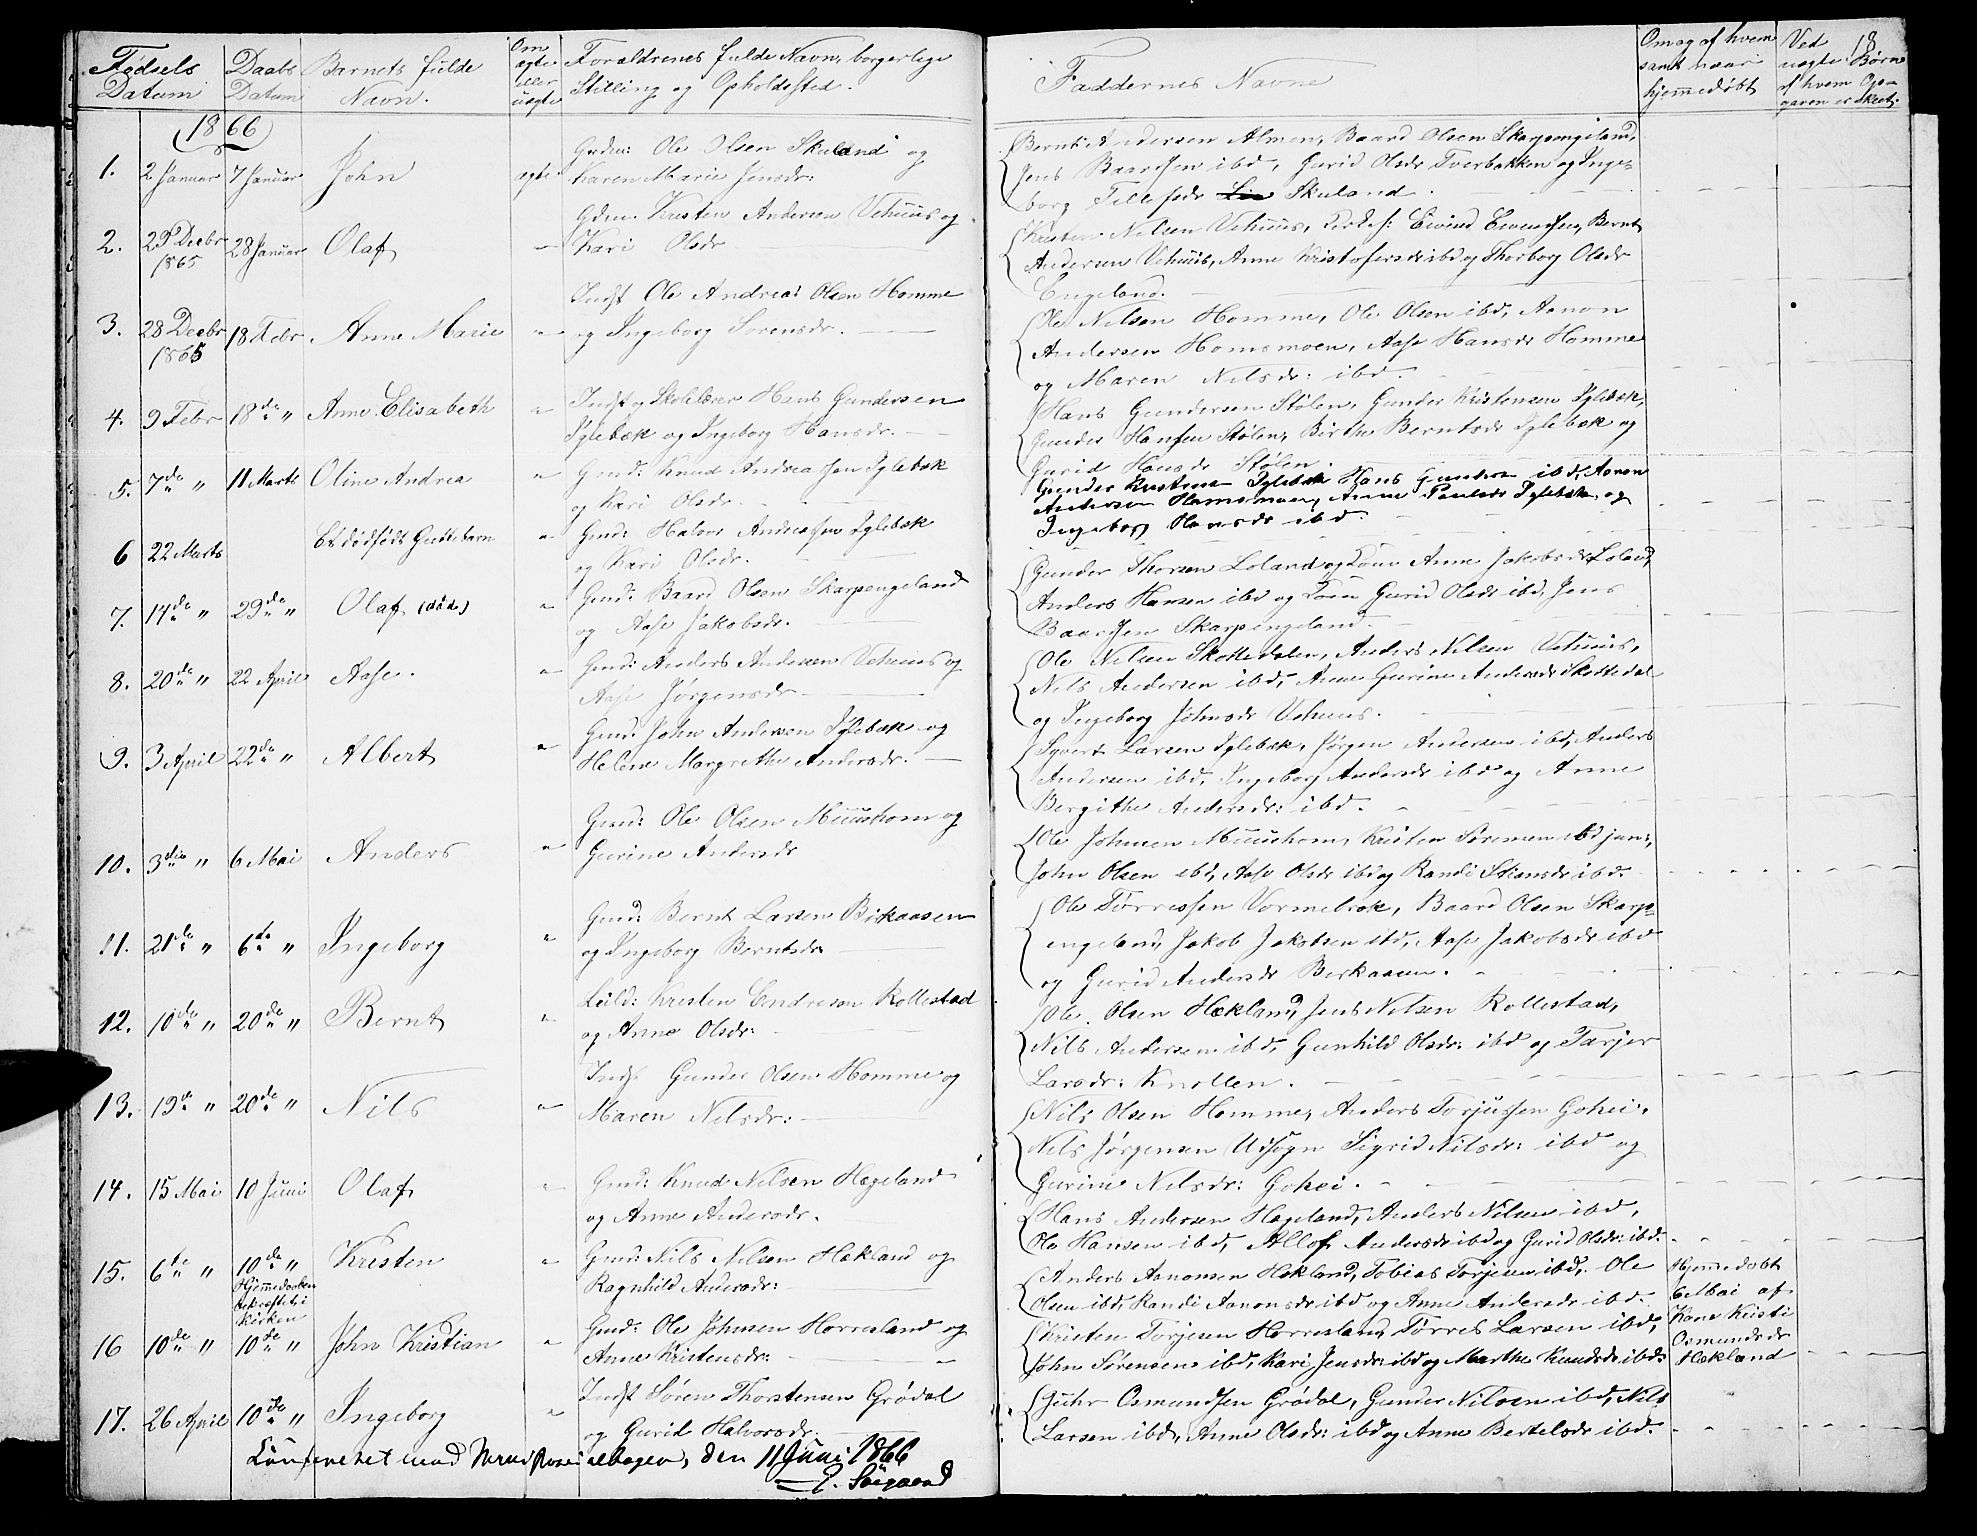 Fødsels Datum
Daabs Datum
Barnets fulde Navn.
Om ægte eller uægte
Forældrenes fulde Navn, borgerlige Stilling og Opholdssted.
Faddernes Navne
Om og af hvem samt naar hjemmedøbt
Ved uægte Børn af hvem Opgaven er skeet.
18
1866
1. 2 Januar 7 Januar John ægte
Gmd: Ole Olsen Skuland og
Karen Marie Jensdr:
Bernt Andersen Almen, Baard Olsen Skarpengeland,
Jens Baardsen ibd, Gurid Olsdr Tverbakken og Inge-
borg Tellefsdr Skuland.
2. 29 Decbr 1865 28 Januar Olaf "
Gdm. Kristen Andersen Vehuus og
Kari Olsdr
Kristen Nilsen Vehuus, Eivind Bernt
Andersen Vehuus, Anne Kristofersdr ibd og Thorborg Olsdr
Engeland.
3. 28 Decbr 1865 18 Febr Anne Marie "
Indst Ole Andreas Olsen Homme
og Ingeborg Sørensdr.
Ole Nilsen Homme, Ole Olsen ibd, Aanon
Andersen Homsmoen, Aase Hansdr Homme
og Maren Nilsdr: ibd.
4. 9 Febr 18de " Anne Elisabeth "
Indst og Skolelærer Hans Gundersen
Iglebæk og Ingeborg Hansdr.
Hans Gundersen Stølen, Gunder Kristensen Iglebæk,
Gunder Hansen Stølen, Birthe Berntsdr Iglebæk og
Gurid Hansdr Stølen.
5. 7de " 11 Marts Oline Andrea "
Gmd: Knud Andreassen Iglebæk
og Kari Olsdr.
Gunder Kristensen Iglebæk Hans Gundersen ibd, Aanon
Andersen Homsmoen, Anne Paulsdr Iglebæk og
Ingeborg Hansdr ibd.
6 22 Marts Et dødfødt Guttebarn "
Gmd: Halvor Andreassen Iglebæk
og Kari Olsdr.
7. 14de " 29de " Olaf (død) "
Gmd: Baard Olsen Skarpengeland
og Aase Jakobsdr.
Gunder Thorsen Loland og Kone Anne Jakobsdr Loland,
Anders Hansen ibd og Kone Gurid Olsdr ibd, Jens
Baardsen Skarpengeland.
8. 20de " 22 April Aase. "
Gmd: Anders Andersen Vehuus og
Aase Jørgensdr.
Ole Nilsen Skottedalen, Anders Nilsen Vehuus,
Nils Andersen ibd, Anne Gurine Andersdr Skottedal
og Ingeborg Johnsdr Vehuus.
9. 3 April 22de " Albert "
Gmd: John Andersen Iglebæk og
Helene Margrethe Andersdr.
Syvert Larsen Iglebæk, Jørgen Andersen ibd, Anders
Andersen ibd, Ingeborg Andersdr ibd og Anne
Bergithe Andersdr: ibd.
10. 3die " 6 Mai Anders "
Gmd: Ole Olsen Muushom og
Gurine Andersdr
Ole Johnsen Muushom, Kristen Sørensen ibd jun:,
John Olsen ibd, Aase Olsdr ibd og Randi ibd.
11. 21de " 6te " Ingeborg "
Gmd: Bernt Larsen Birkaasen
og Ingeborg Berntsdr
Ole Tørressen Vormelrok, Baard Olsen Skarp-
engeland, Jakob Jakobsen ibd, Aase Jakobsdr ibd
og Gurid Andersdr Berkaasen.
12. 10de " 20de " Bernt "
Leild: Kristen Endresen Rollestad
og Anne Olsdr:
Ole Olsen Hækland, Jens Nilsen Rollestad,
Nils Andersen ibd, Gunhild Olsdr: ibd og Tarjer
Larsdr: Knollen.
13. 19de " 20de " Nils "
Indst Gunder Olsen Homme og
Maren Nilsdr:
Nils Olsen Homme, Anders Torjussen Gohei,
Nils Jørgensen Udsogn Sigrid Nilsdr: ibd og
Gurine Nilsdr: Gohei.
14. 15 Mai 10 Juni Olaf "
Gmd: Knud Nilsen Hægeland
og Anne Andersdr.
Hans Andersen Hægeland, Anders Nilsen ibd,
Ole Hansen ibd, Andersdr ibd og Gurid Olsdr: ibd.
15. 6te " 10de " Kristen "
Hjemmedaaben bekræftet i Kirken
Gmd: Nils Nilsen Hækland og
Ragnhild Andersdr:
Anders Aanonsen Hækland, Tobias Torjesen ibd, Ole
Olsen ibd, Randi Aanonsdr ibd og Anne Andersdr ibd.
Hjemmedøbt 6 Mai af Kone Kristi Osmundsdr Hækland
16 10de " 10de " John Kristian "
Gmd: Ole Johnsen Horresland og
Anne Kristensdr:
Kristen Torjesen Horresland, Tørres Larsen ibd,
John Sørensen ibd, Kari Jensdr: ibd og Marthe Knudsdr ibd.
17. 26 April 10de " Ingeborg "
Indst Søren Thorstensen Grødal
og Gurid Halvorsdr.
Osmundsen Grødal, Gunder Nilsen ibd, Nils
Larsen ibd, Anne Olsdr: ibd og Anne Bertelsdr ibd.
Confereret med Ministerialbogen, den 11 Juni 1866